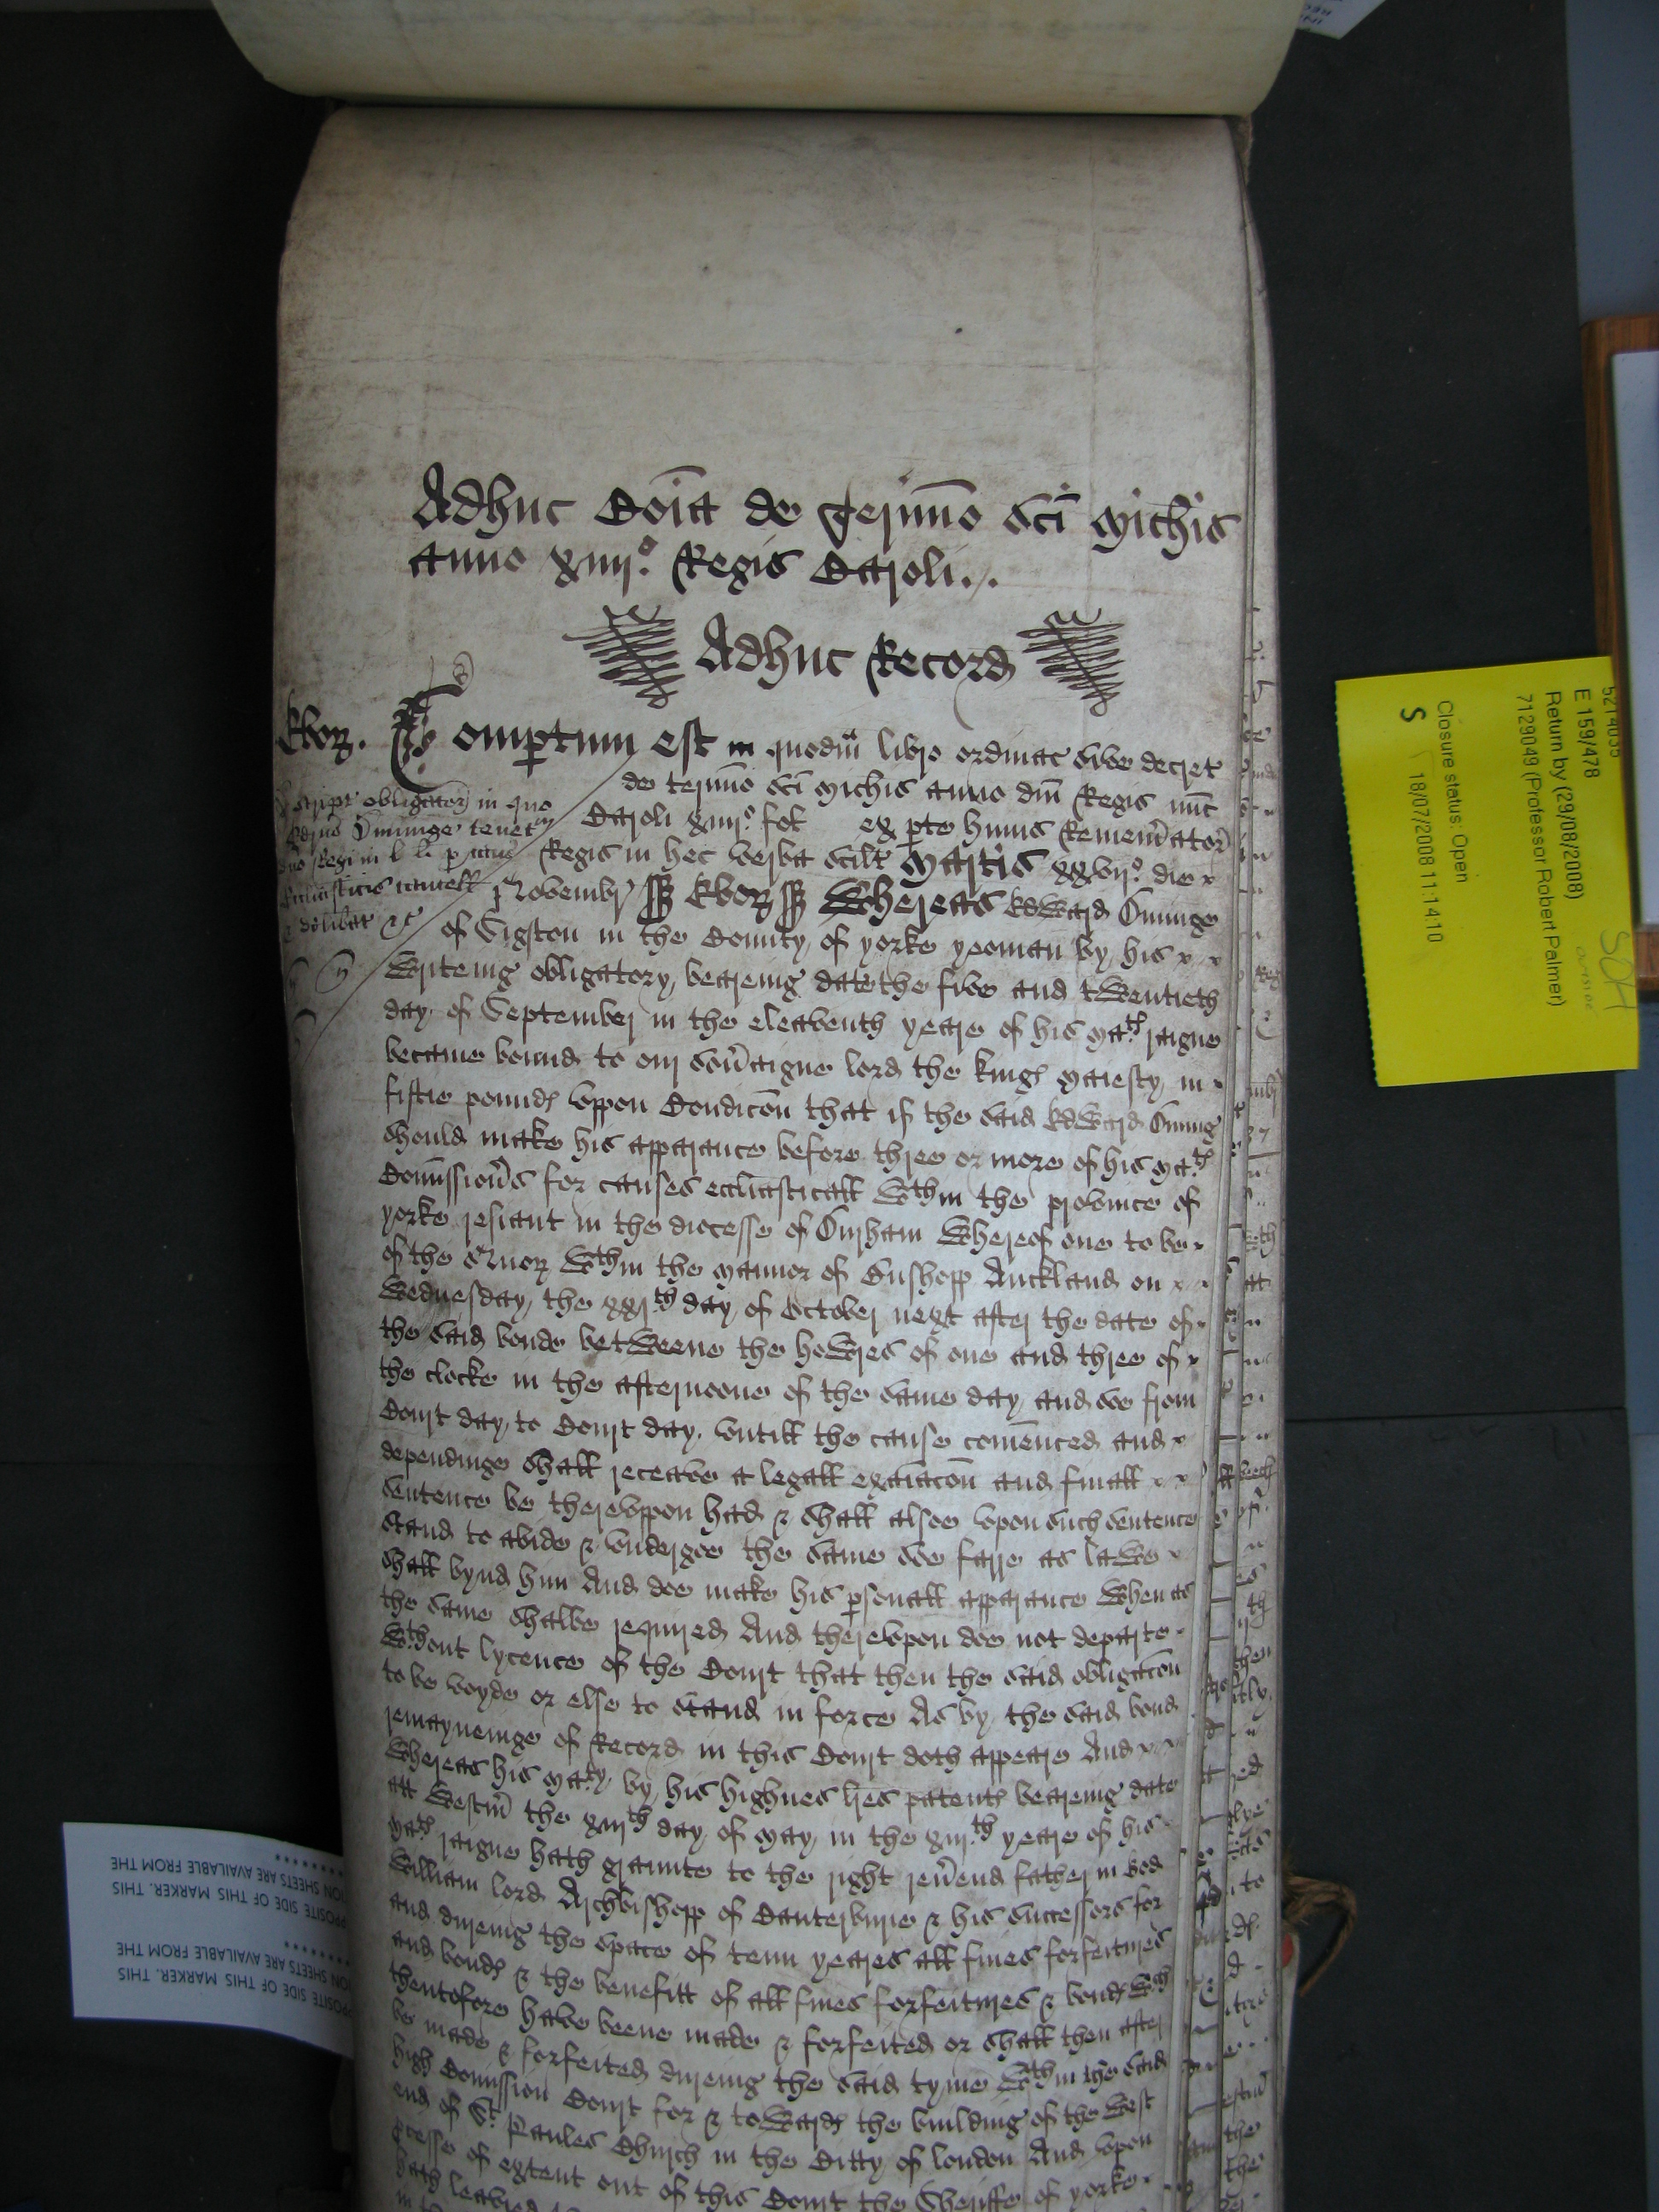 Adhuc Coia de Termino Sci Michis
anno xiiij.o Regis Caroli.
Adhuc Record
Ebor.
Compertum est in quodm libro ordinac sive decret
de termino Sci Michis anno dni Regis nunc
Caroli xiiij.o fol ex pte huius Rememorator
Regis in hec verba scilt Martis xxvij.o die
Novembr Ebor Whereas Edward
of Sigston in the County of yorke yeoman by his
Writeing obligatory beareing date the five and twentieth
day of September in the eleaventh yeare of his Mats raigne
became bound to our Soveraigne lord the kings Maiesty in
fiftie pounds vppon Condicon that if the said Edward
should make his apparance before three or more of his Mats
Comissioners for causes ecclīasticall Wthin the province of
yorke resiant in the diocesse of Durham Whereof one to be
of the Quor Wthin the Mannor of Bushopp Auckland on
Wednesday the xxjth day of October next after the date of
the said bonde betweene the howres of one and three of
the clocke in the afternoone of the same day and soe from
Court day to Court day vntill the cause comenced and
dependinge shall receave a legall exaiacon and finall
sentence be therevppon had & shall alsoe vpon such sentence
stand to abide & vndergoe the same soe farre as lawe
shall bynd him And doe make his psonall apparance When as
the same shalbe required And therevpon doe not departe
Wthout lycence of the Court that then the said obligacon
to be voyde or else to stand in force As by the said bond
remayneinge of Record in this Court doth appeare And
Whereas his Maty by his highnes lres patents beareing date
att Westm the xiijth day of May in the xiijth yeare of his
Mats raigne hath graunte to the right revend father in God
William lord Archbishopp of Canterburie & his successors for
and dureing the space of tenn yeares all fines forfeitures
and bonds & the benefitt of all fines forfeitures & bonds Wch
thentofore have beene made & forfeited or shall then after
be made & forfeited dureing the said tyme Wthin the said
high Comission Court for & towards the building of the West
end of St Paules Church in the Citty of london And vpon
pcesse of extent out of this Court the Sheriffe of yorke
hath leavied
script obligator in quo
tenet
dno Regi in l li p
5214035
E 159/478
Return by (29/08/2008)
7129049 (Professor Robert Palmer)
Closure status: Open
S 18/07/2008 11:14:10
OPPOSITE SIDE OF THIS MARKER. THIS
ION SHEETS ARE AVAILABLE FROM THE
OPPOSITE SIDE OF THIS MARKER. THIS
ION SHEETS ARE AVAILABLE FROM THE